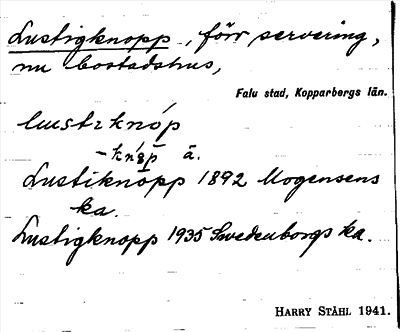 Lustigknopp, förr servering,
nu bostadshus,
Falu stad, Kopparbergs län.
Lustiknöpp 1892 Mogensens
ka.
Lustigknopp 1935 Swedenborgs ka.
HARRY STÅHL 1941.